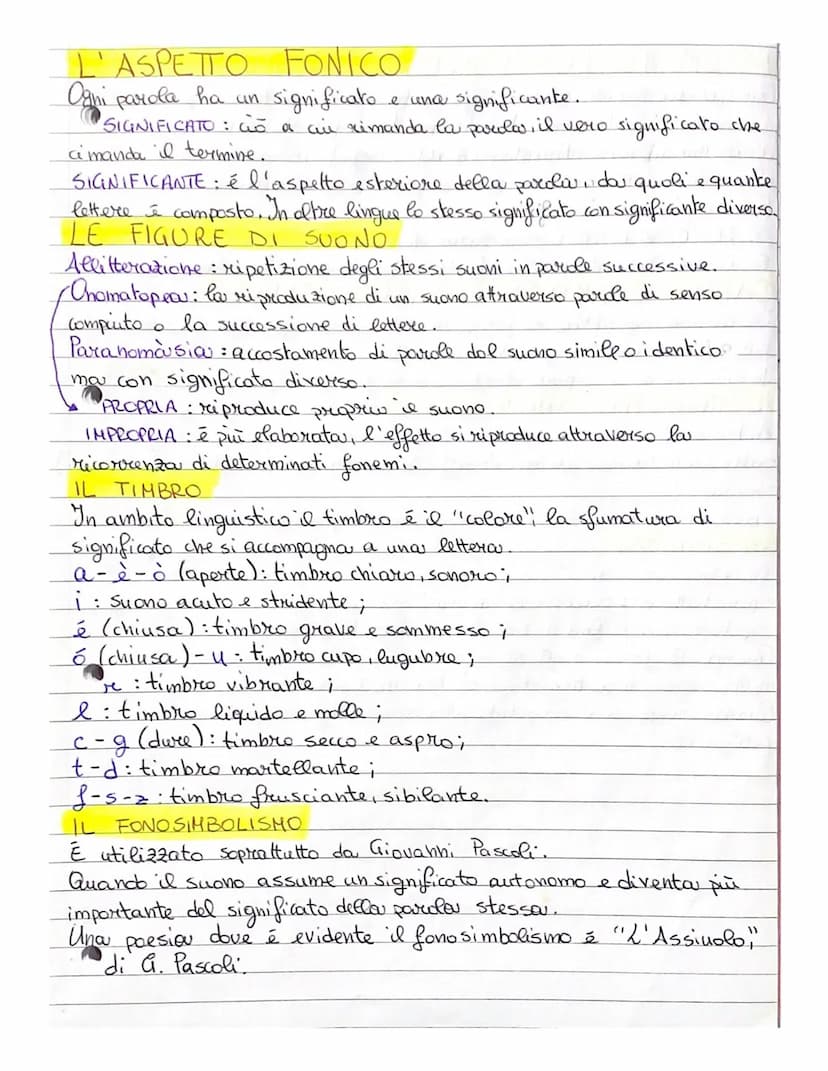 L'ASPETTO FONICO
Ogni parola ha un significato e una significante.
SIGNIFICATO : ciò a cui rimanda la parola, il vero significato che
ci manda il termine.
SIGNIFICANTE : é l'aspetto esteriore della parola, da quali e quante
lettere è composto. In altre lingue lo stesso significato con significante diverso.
LE FIGURE DI SUONO
Allitterazione : ripetizione degli stessi suoni in parole successive.
Onomatopea : la riproduzione di un suono attraverso parole di senso
compiuto o la successione di lettere.
Paranomàsia : accostamento di parole dal suono simile o identico
ma con significato diverso.
PROPRIA : riproduce proprio il suono.
IMPROPRIA : è più elaborata, l'effetto si riproduce attraverso la
ricorrenza di determinati fonemi.
IL TIMBRO
In ambito linguistico il timbro é il "colore", la sfumatura di
significato che si accompagna a una lettera.
a - è - ò (aperte) : timbro chiaro, sonoro ;
i : suono acuto e stridente ;
é (chiusa) : timbro grave e sommesso ;
ó (chiusa) - u : timbro cupo, lugubre ;
r : timbro vibrante ;
l : timbro liquido e molle ;
c - g (dure) : timbro secco e aspro ;
t - d : timbro martellante ;
f - s - z : timbro frusciante, sibilante.
IL FONOSIMBOLISMO
É utilizzato soprattutto da Giovanni Pascoli.
Quando il suono assume un significato autonomo e diventa più
importante del significato della parola stessa.
Una poesia dove è evidente il fonosimbolismo è "L'Assiuolo",
di G. Pascoli.